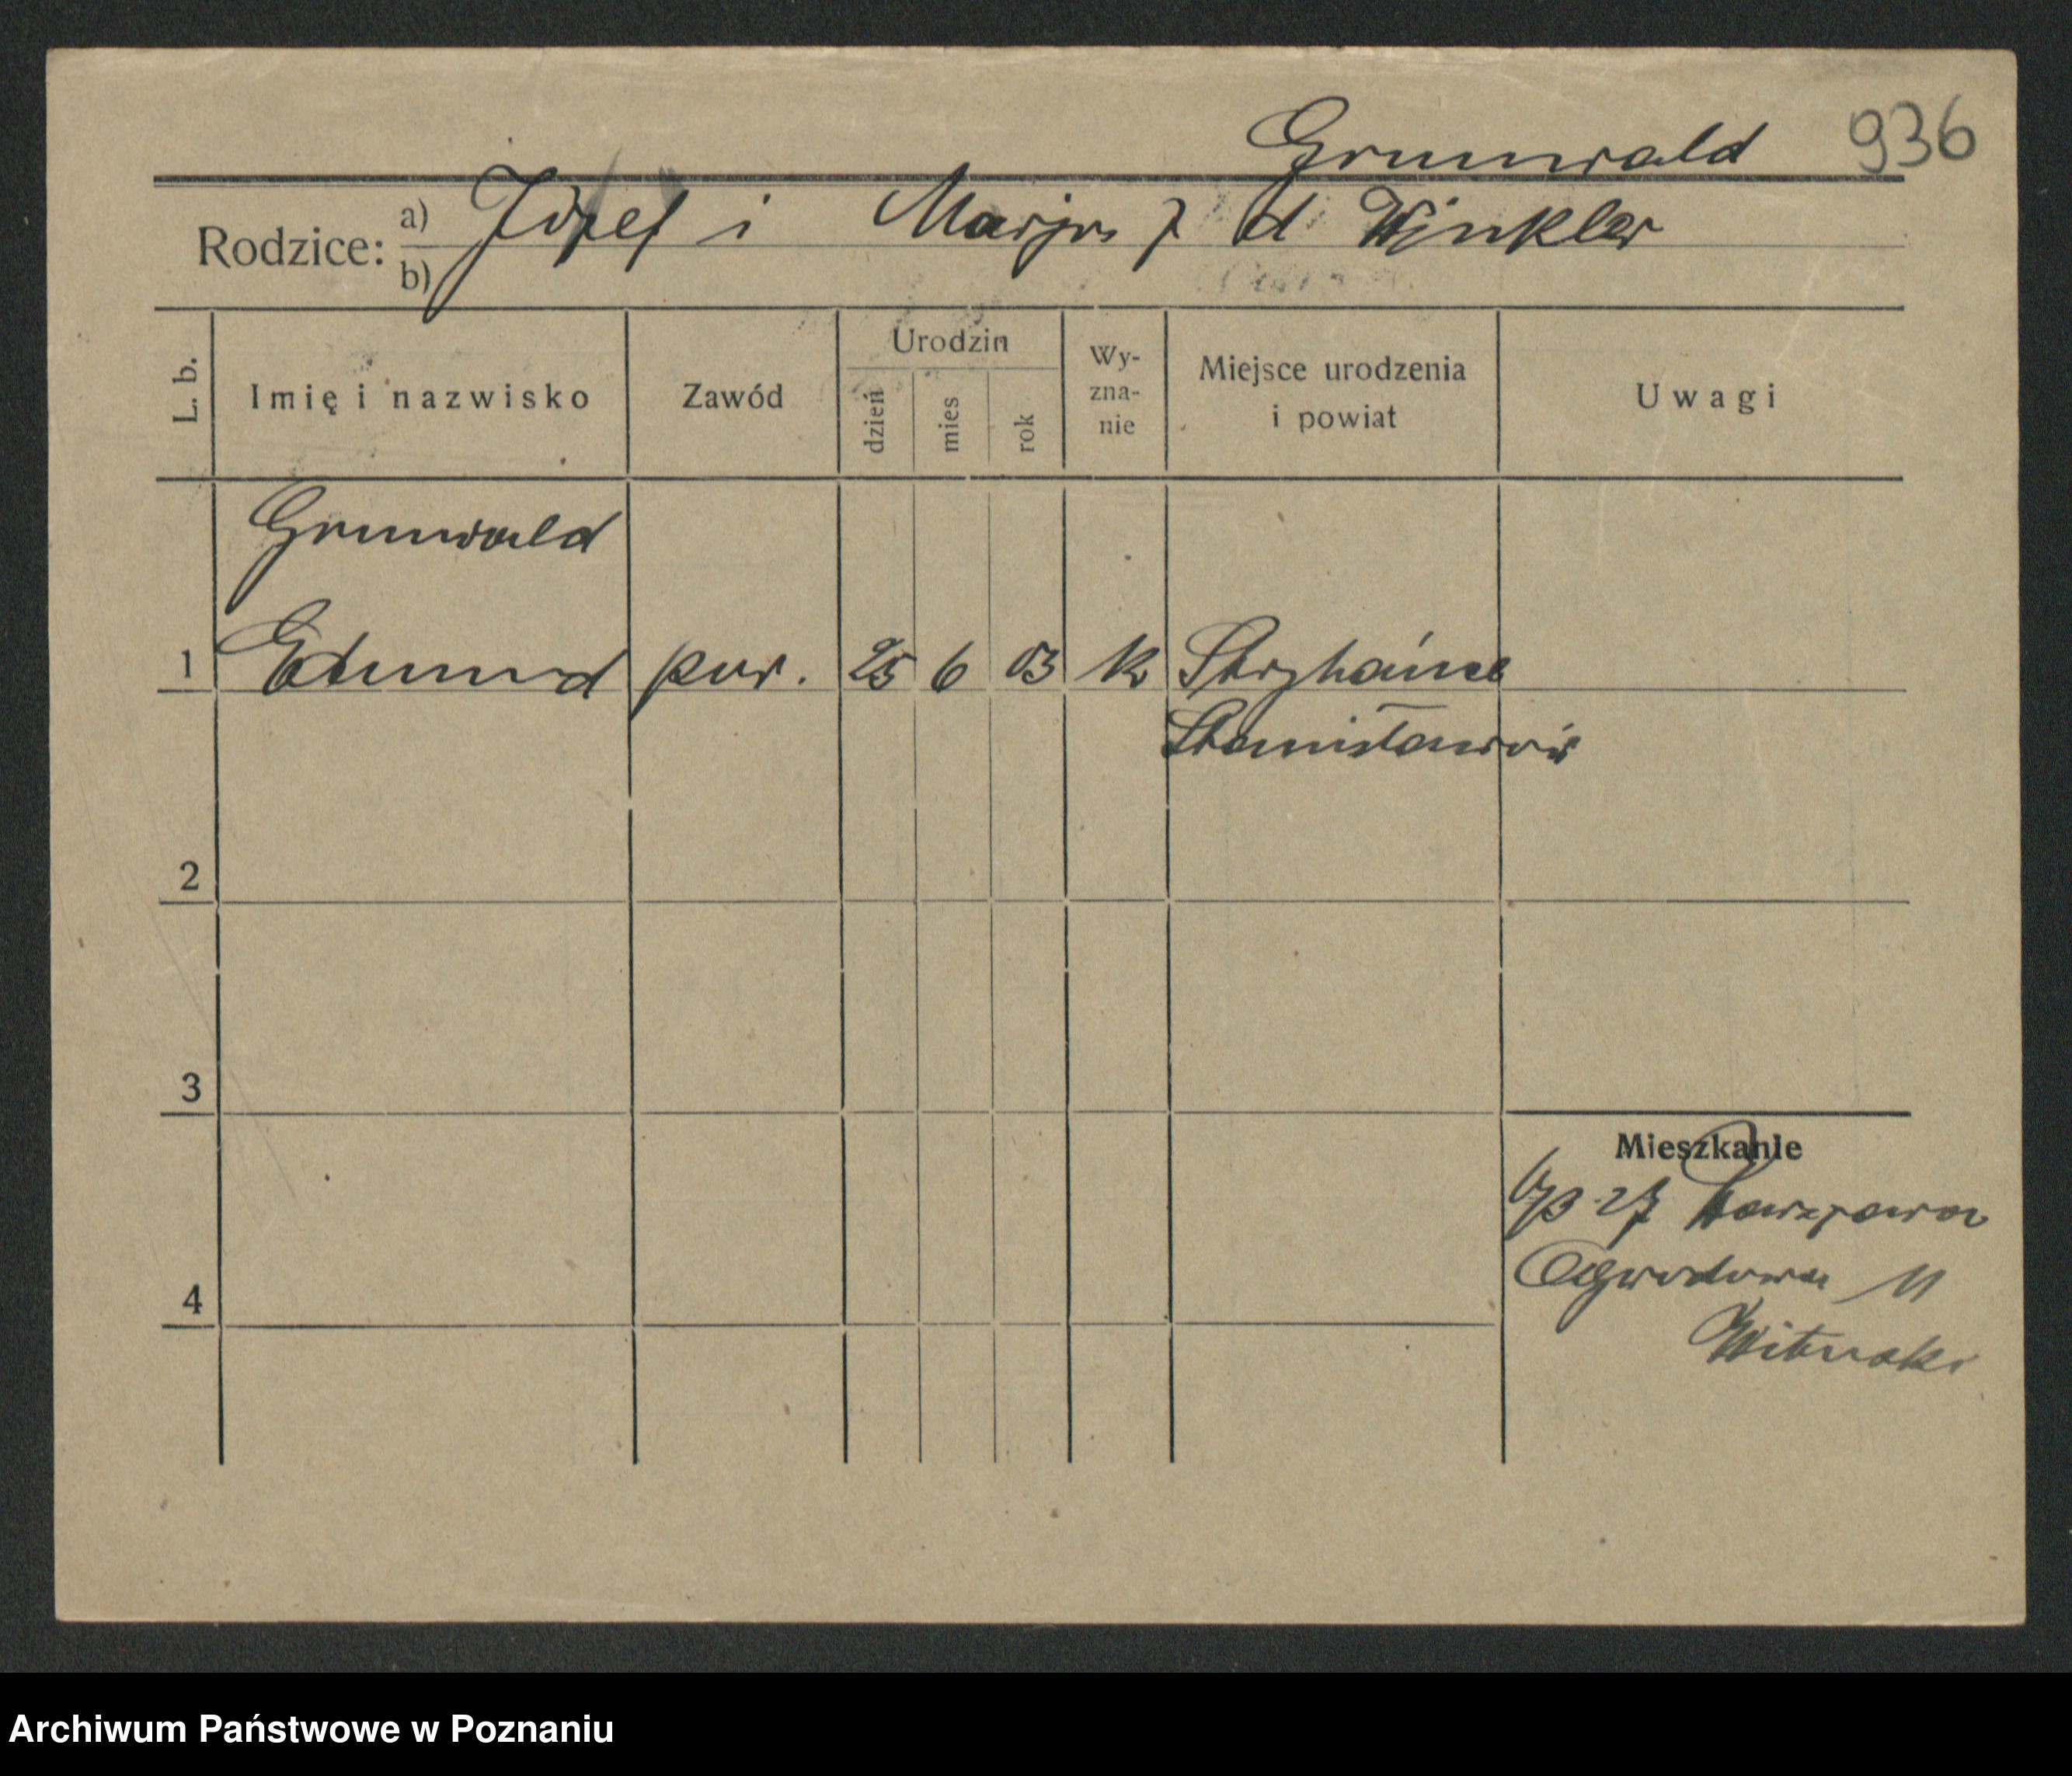 Grunwald 936
Rodzice: a) Józef i Marja z d. Winkler
b)
L. b. Imię i nazwisko Zawód Urodzin dzień mies rok Wy-zna-nie Miejsce urodzenia i powiat Uwagi
Grunwald
1 Edmund por. 25 6 03 k Stryhańce
Stanisławów
2
3
Mieszkanie
27 Warszawa
4 Ogrodowa 11
Archiwum Państwowe w Poznaniu